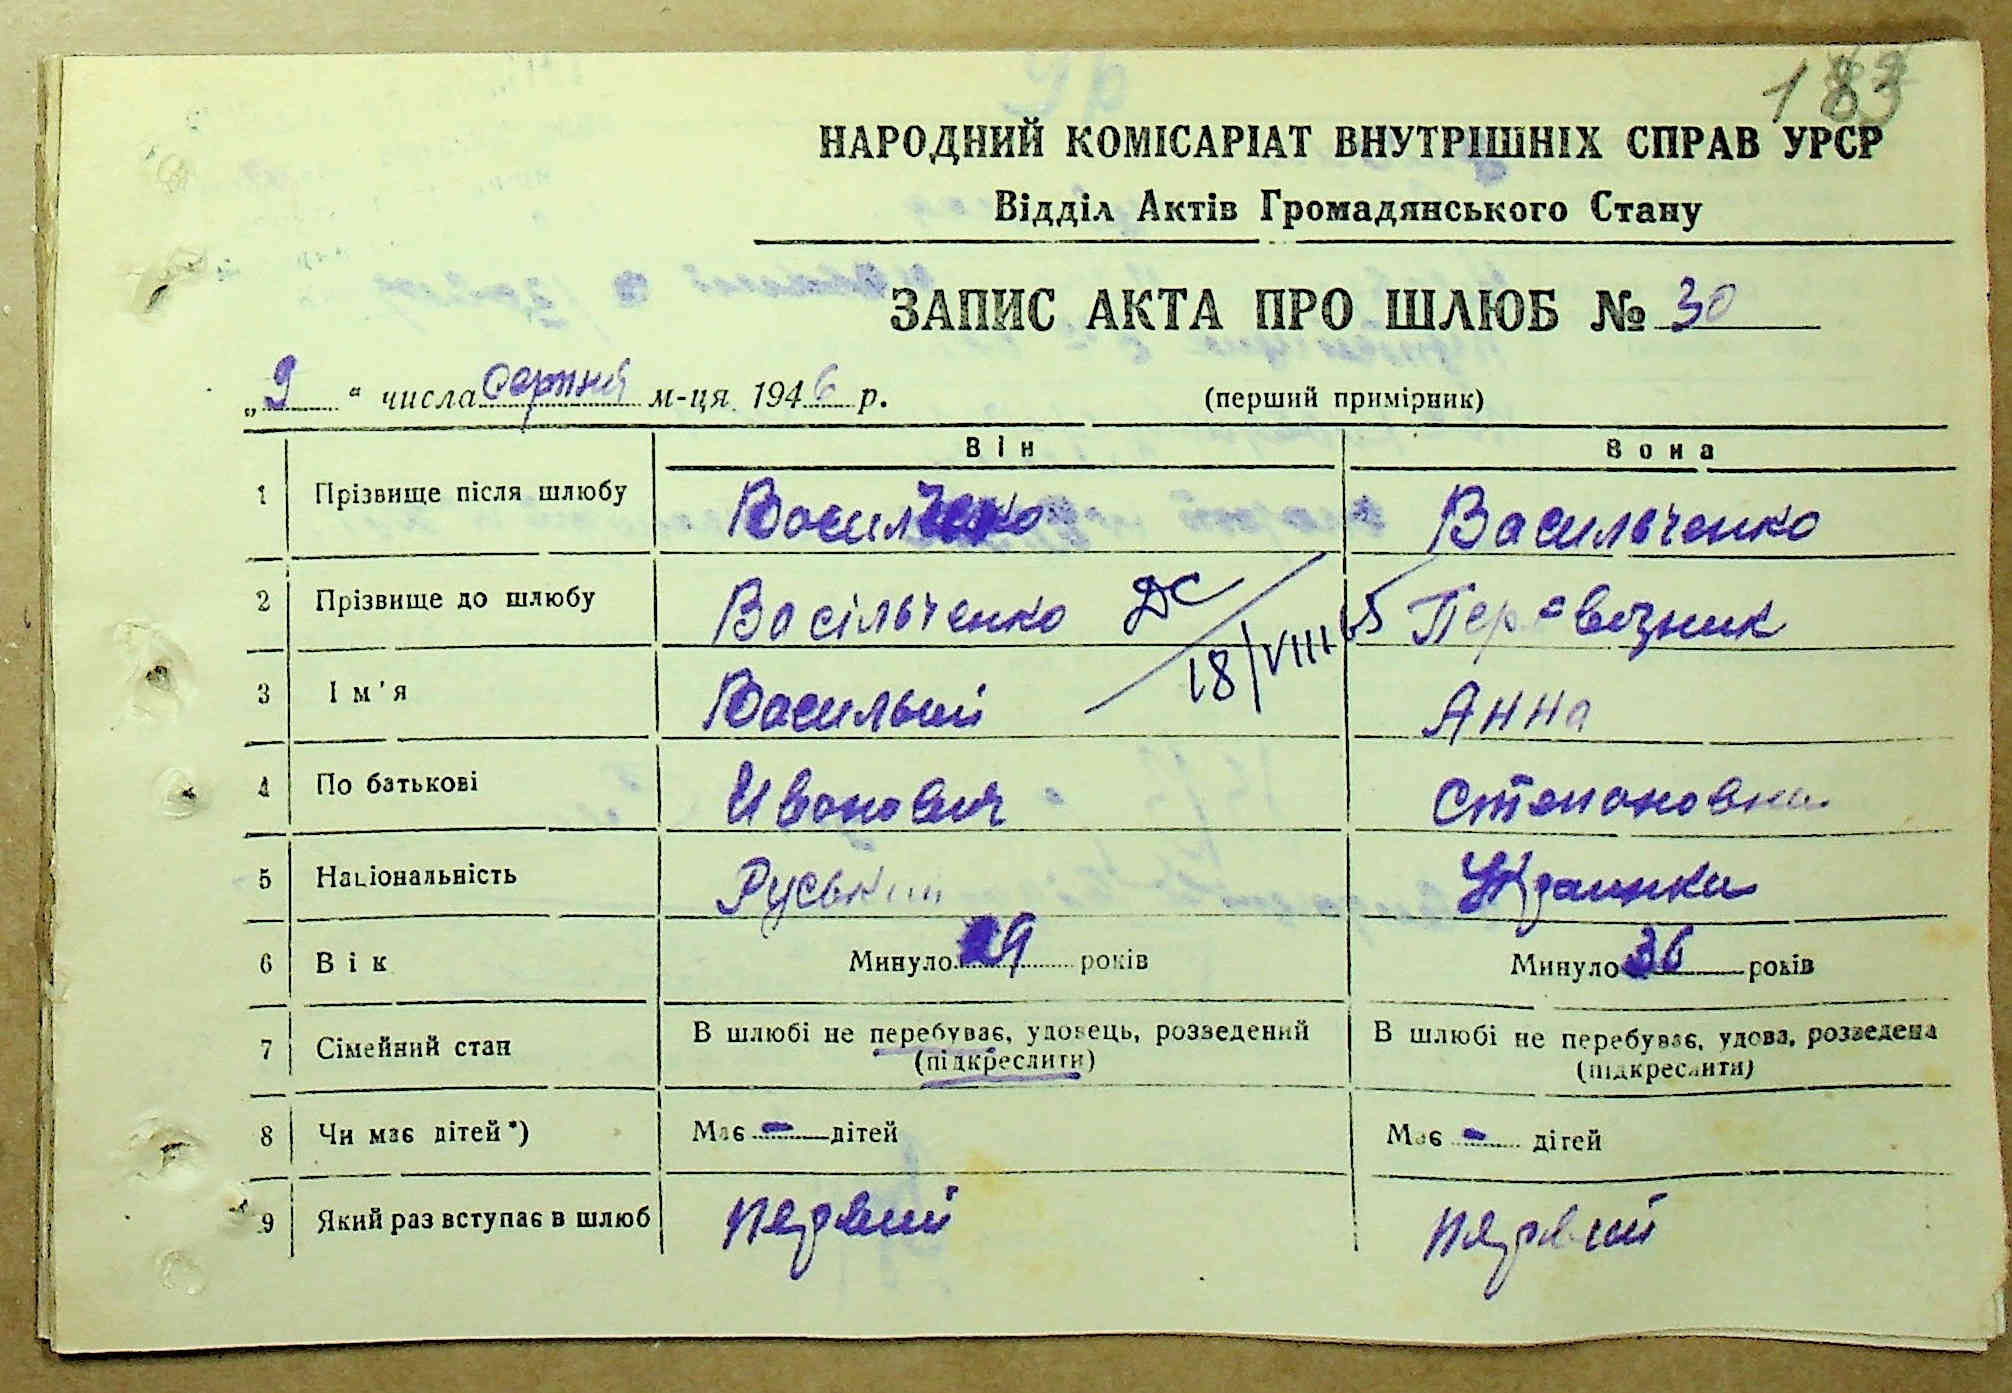 183
НАРОДНИЙ КОМІСАРІАТ ВНУТРІШНІХ СПРАВ УРСР
Відділ Актів Громадянського Стану
ЗАПИС АКТА ПРО ШЛЮБ № 30
„9“ числа серпня м-ця 1946 р. (перший примірник)
Він Вона
1 Прізвище після шлюбу Васильченко Васильченко
2 Прізвище до шлюбу Васільченко ДС Перевізник
18/VIII 65
3 Ім'я Василий Анна
4 По батькові Иванович Степановна
5 Національність Руський Украинка
6 Вік Минуло 29 років Минуло 36 років
7 Сімейний стан В шлюбі не перебуває, удовець, розведений В шлюбі не перебуває, удова, розведена
(підкреслити) (підкреслити)
8 Чи має дітей*) Має - дітей Має - дітей
9 Який раз вступає в шлюб первий первий